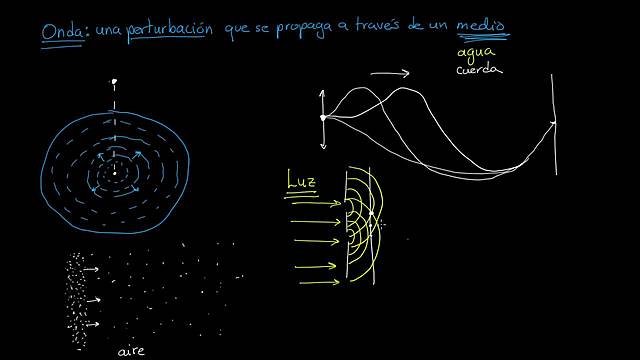 Onda: una perturbación que se propaga a través de un medio
agua
cuerda
Luz
aire